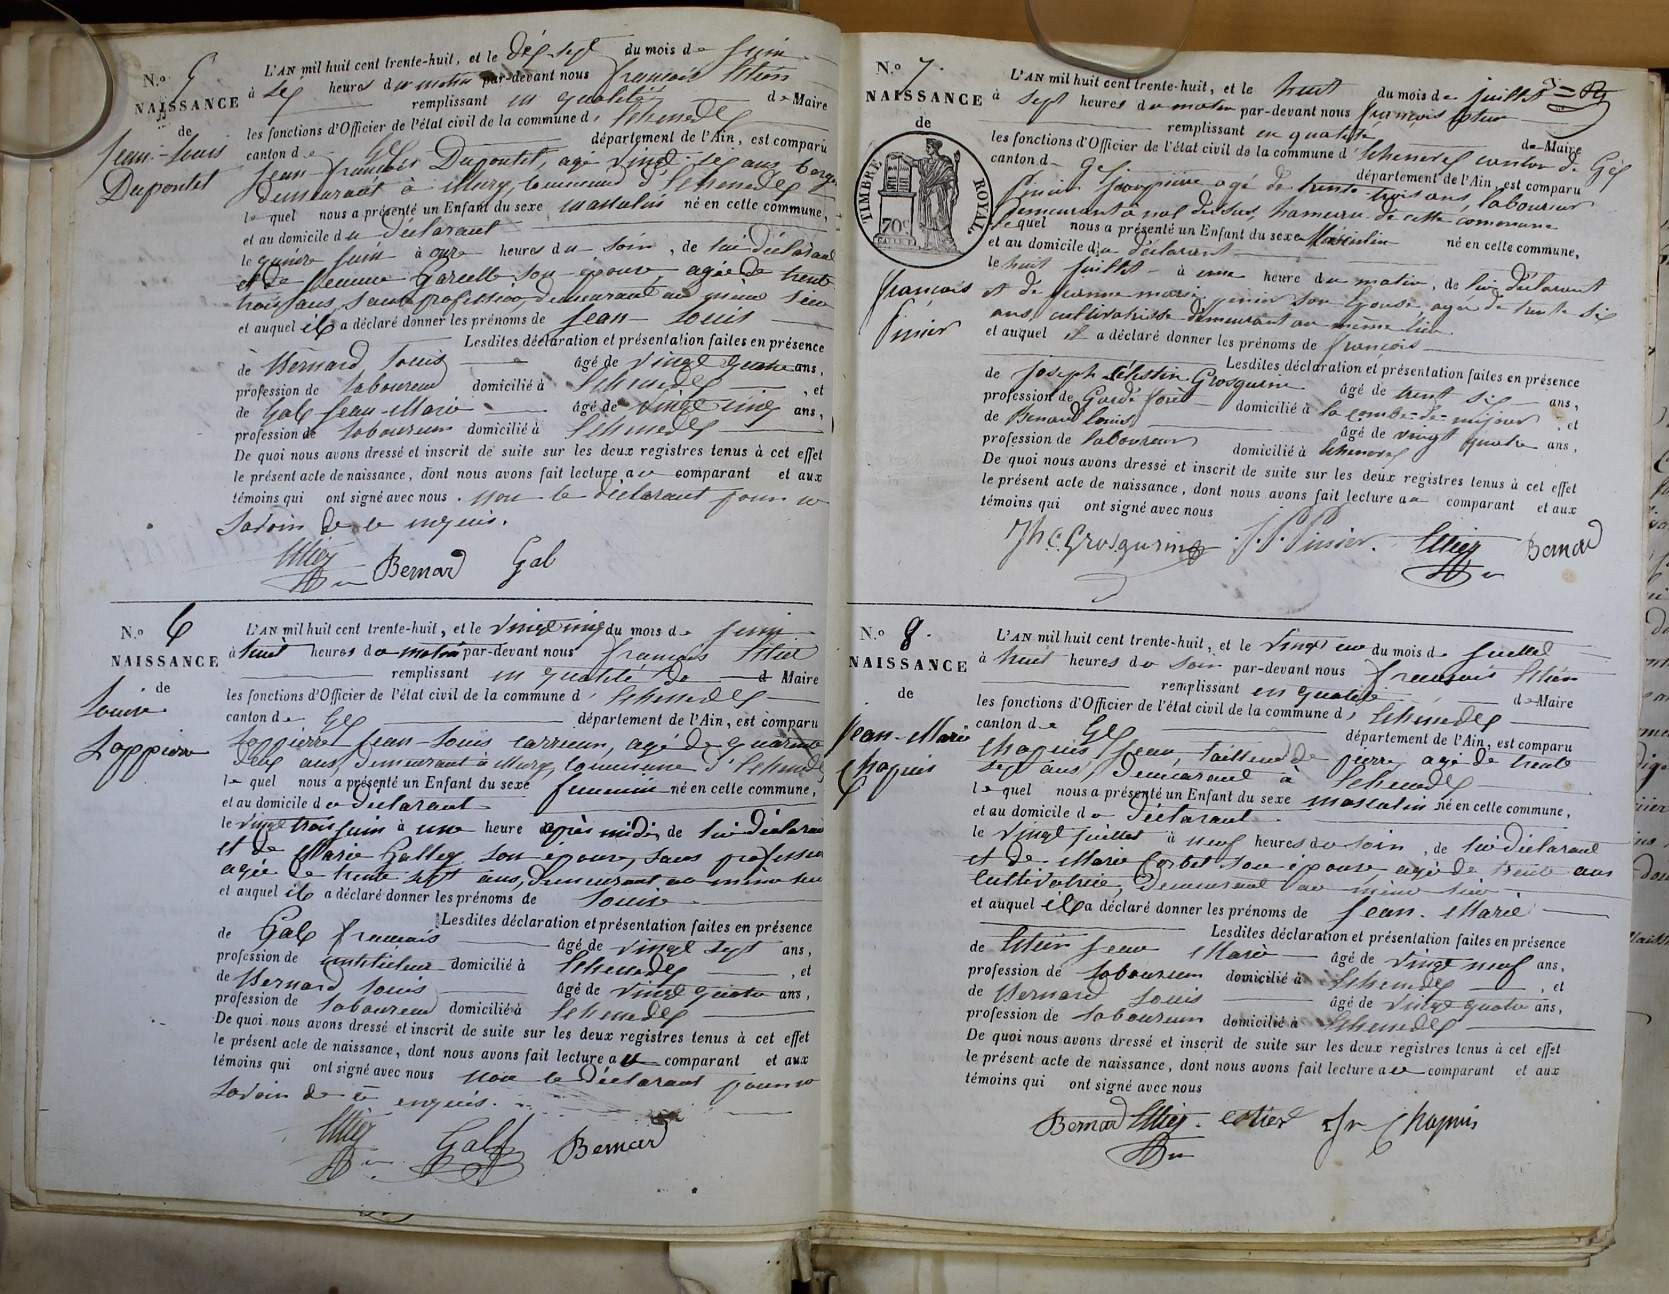 N.o 5
NAISSANCE
de
Jean-Louis
Dupontet
L'AN mil huit cent trente-huit, et le dix-sept du mois de Juin
à six heures du matin par-devant nous françois
remplissant en qualité de Maire
les fonctions d'Officier de l'état civil de la commune d'
canton de Gex département de l'Ain, est comparu
Jean françois Dupontet, agé vingt-six ans
demeurant à Mury, commune d'
le quel nous a présenté un Enfant du sexe masculin né en cette commune,
et au domicile du déclarant
le quinze Juin à onze heures du soir, de lui déclarant
et de son épouse, agée de trente
trois ans, sans profession, demeurant au même lieu
et auquel il a déclaré donner les prénoms de Jean-Louis
Lesdites déclaration et présentation faites en présence
de Bernard Louis âgé de vingt quatre ans,
profession de laboureur domicilié à , et
de Gal Jean-Marie âgé de vingt cinq ans,
profession de laboureur domicilié à
De quoi nous avons dressé et inscrit de suite sur les deux registres tenus à cet effet
le présent acte de naissance, dont nous avons fait lecture au comparant et aux
témoins qui ont signé avec nous. non le déclarant pour ne
savoir de ce enquis.
Bernard Gal
N.o 6
NAISSANCE
de
Louise
Lappierre
L'AN mil huit cent trente-huit, et le vingt cinq du mois de Juin
à huit heures du matin par-devant nous françois
remplissant en qualité de Maire
les fonctions d'Officier de l'état civil de la commune d'
canton de Gex département de l'Ain, est comparu
Lappierre Jean-Louis, agé de quarante
deux ans, demeurant à Mury, commune d'
le quel nous a présenté un Enfant du sexe feminin né en cette commune,
et au domicile du déclarant
le vingt trois Juin à une heure après midi, de lui déclarant
et de Marie son épouse, sans profession
agée de trente sept ans, demeurant au même lieu
et auquel il a déclaré donner les prénoms de Louise
Lesdites déclaration et présentation faites en présence
de Gal françois âgé de vingt sept ans,
profession de domicilié à , et
de Bernard Louis âgé de vingt quatre ans,
profession de laboureur domicilié à
De quoi nous avons dressé et inscrit de suite sur les deux registres tenus à cet effet
le présent acte de naissance, dont nous avons fait lecture au comparant et aux
témoins qui ont signé avec nous non le déclarant pour ne
savoir de ce enquis.
Gal Bernard
N.o 7.
NAISSANCE
de
TIMBRE ROYAL
70c
françois
Pinier
L'AN mil huit cent trente-huit, et le huit du mois de juillet
à sept heures du matin par-devant nous françois
remplissant en qualité de Maire
les fonctions d'Officier de l'état civil de la commune d' canton de Gex
canton d- Gex département de l'Ain, est comparu
Pinier agé de trente-trois ans, laboureur
demeurant à hameau de cette commune
le quel nous a présenté un Enfant du sexe Masculin né en cette commune,
et au domicile du déclarant
le huit juillet à une heure du matin, de lui déclarant
et de jeanne marie son épouse, agée de trente six
ans, cultivatrice demeurant au même lieu
et auquel il a déclaré donner les prénoms de françois
Lesdites déclaration et présentation faites en présence
de joseph Célestin Grosgurin âgé de trent six ans,
profession de Garde forêt domicilié à la combe-de-mijoux et
de Bernard louis âgé de vingt quatre ans,
profession de laboureur domicilié à
De quoi nous avons dressé et inscrit de suite sur les deux registres tenus à cet effet
le présent acte de naissance, dont nous avons fait lecture au comparant et aux
témoins qui ont signé avec nous
Jh C. Grosgurin J. P. Pinier. Bernard
N.o 8.
NAISSANCE
de
Jean-Marie
Chapuis
L'AN mil huit cent trente-huit, et le vingt un du mois de Juillet
à huit heures du soir par-devant nous françois
remplissant en qualité de Maire
les fonctions d'Officier de l'état civil de la commune d'
canton de Gex département de l'Ain, est comparu
Chapuis Jean, tailleur de pierre, agé de trente
sept ans, demeurant à
le quel nous a présenté un Enfant du sexe masculin né en cette commune,
et au domicile du déclarant
le vingt juillet à neuf heures du soir, de lui déclarant
et de Marie Corbet son épouse, agée de trente ans
cultivatrice, demeurant au même lieu
et auquel il a déclaré donner les prénoms de Jean-Marie
Lesdites déclaration et présentation faites en présence
de Jean Marie âgé de vingt neuf ans,
profession de laboureur domicilié à , et
de Bernard Louis âgé de vingt quatre ans,
profession de laboureur domicilié à
De quoi nous avons dressé et inscrit de suite sur les deux registres tenus à cet effet
le présent acte de naissance, dont nous avons fait lecture au comparant et aux
témoins qui ont signé avec nous
Bernard Chapuis